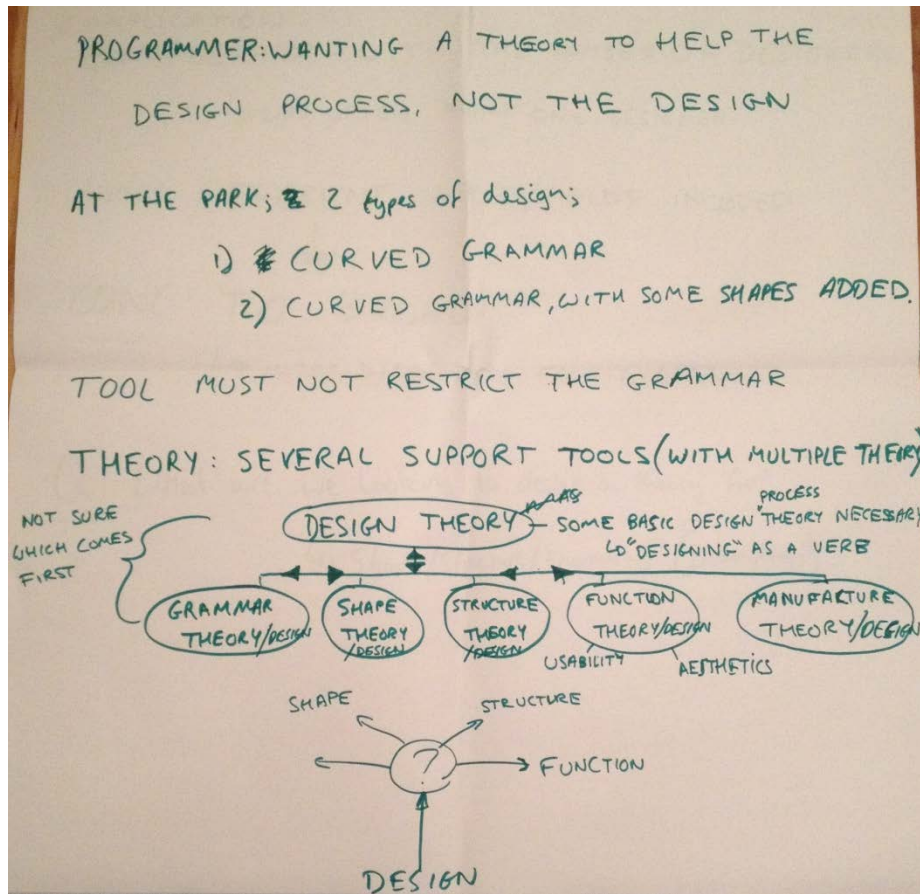 PROGRAMMER: WANTING A THEORY TO HELP THE
DESIGN PROCESS, NOT THE DESIGN
AT THE PARK; 2 types of design;
1) CURVED GRAMMAR
2) CURVED GRAMMAR, WITH SOME SHAPES ADDED.
TOOL MUST NOT RESTRICT THE GRAMMAR
THEORY: SEVERAL SUPPORT TOOLS (WITH MULTIPLE THEORY)
NOT SURE
WHICH COMES
FIRST
DESIGN THEORY - SOME BASIC DESIGN "PROCESS THEORY NECESSARY
"DESIGNING" AS A VERB
GRAMMAR
THEORY/DESIGN
SHAPE
THEORY
/DESIGN
STRUCTURE
THEORY
/DESIGN
FUNCTION
THEORY/DESIGN
MANUFACTURE
THEORY/DESIGN
USABILITY
AESTHETICS
SHAPE
STRUCTURE
?
FUNCTION
DESIGN